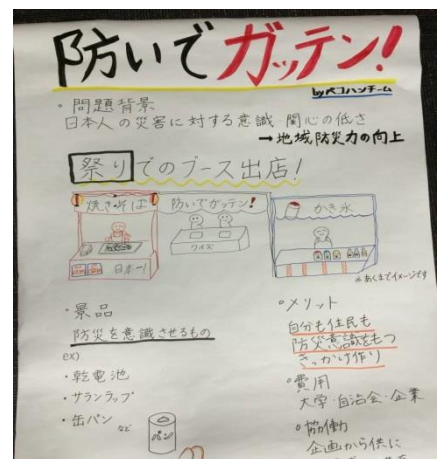 防いでガッテン!
byペコハンチーム
・問題背景
日本人の災害に対する意識・関心の低さ
→地域防災力の向上
祭りでのブース出店!
焼きそば
日本一!
防いでガッテン!
クイズ
かき氷
※あくまでイメージです
・景品
防災を意識させるもの
ex)
・乾電池
・サランラップ
・缶パン など
パン
○メリット
自分も住民も
防災意識をもつ
きっかけ作り
○費用
大学・自治会・企業
○協働
企画から供に